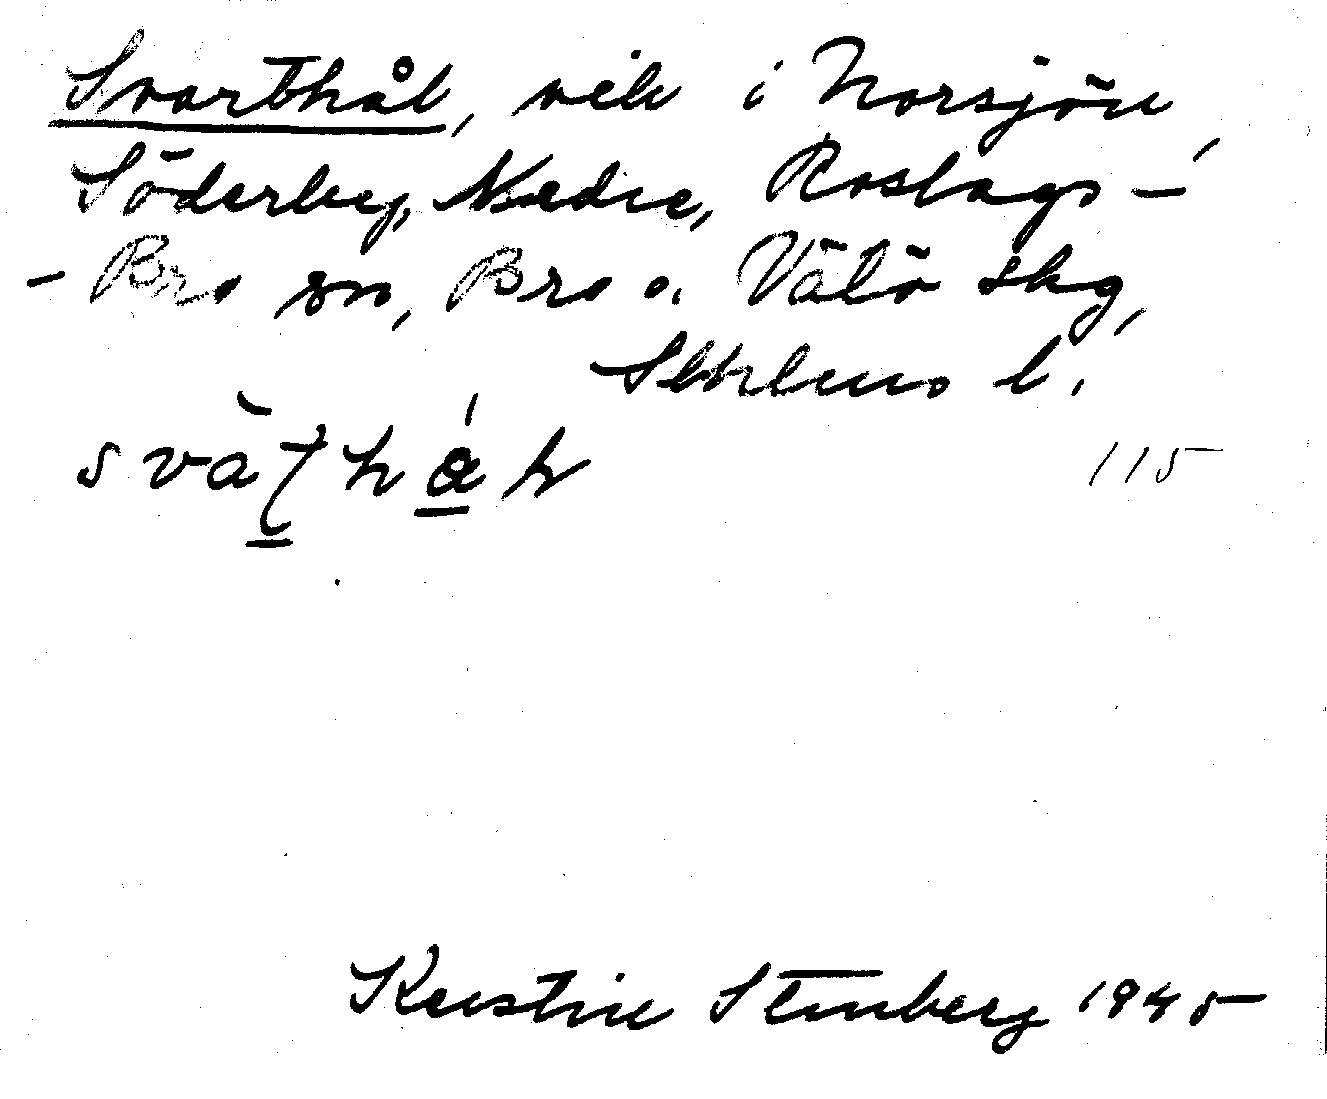 Svarthål, vik i Norsjön,
Söderby, Nedre, Roslags-
- Bro sn, Bro o. Vätö skg,
Sthlms l.
115
Kerstin Stenberg 1945